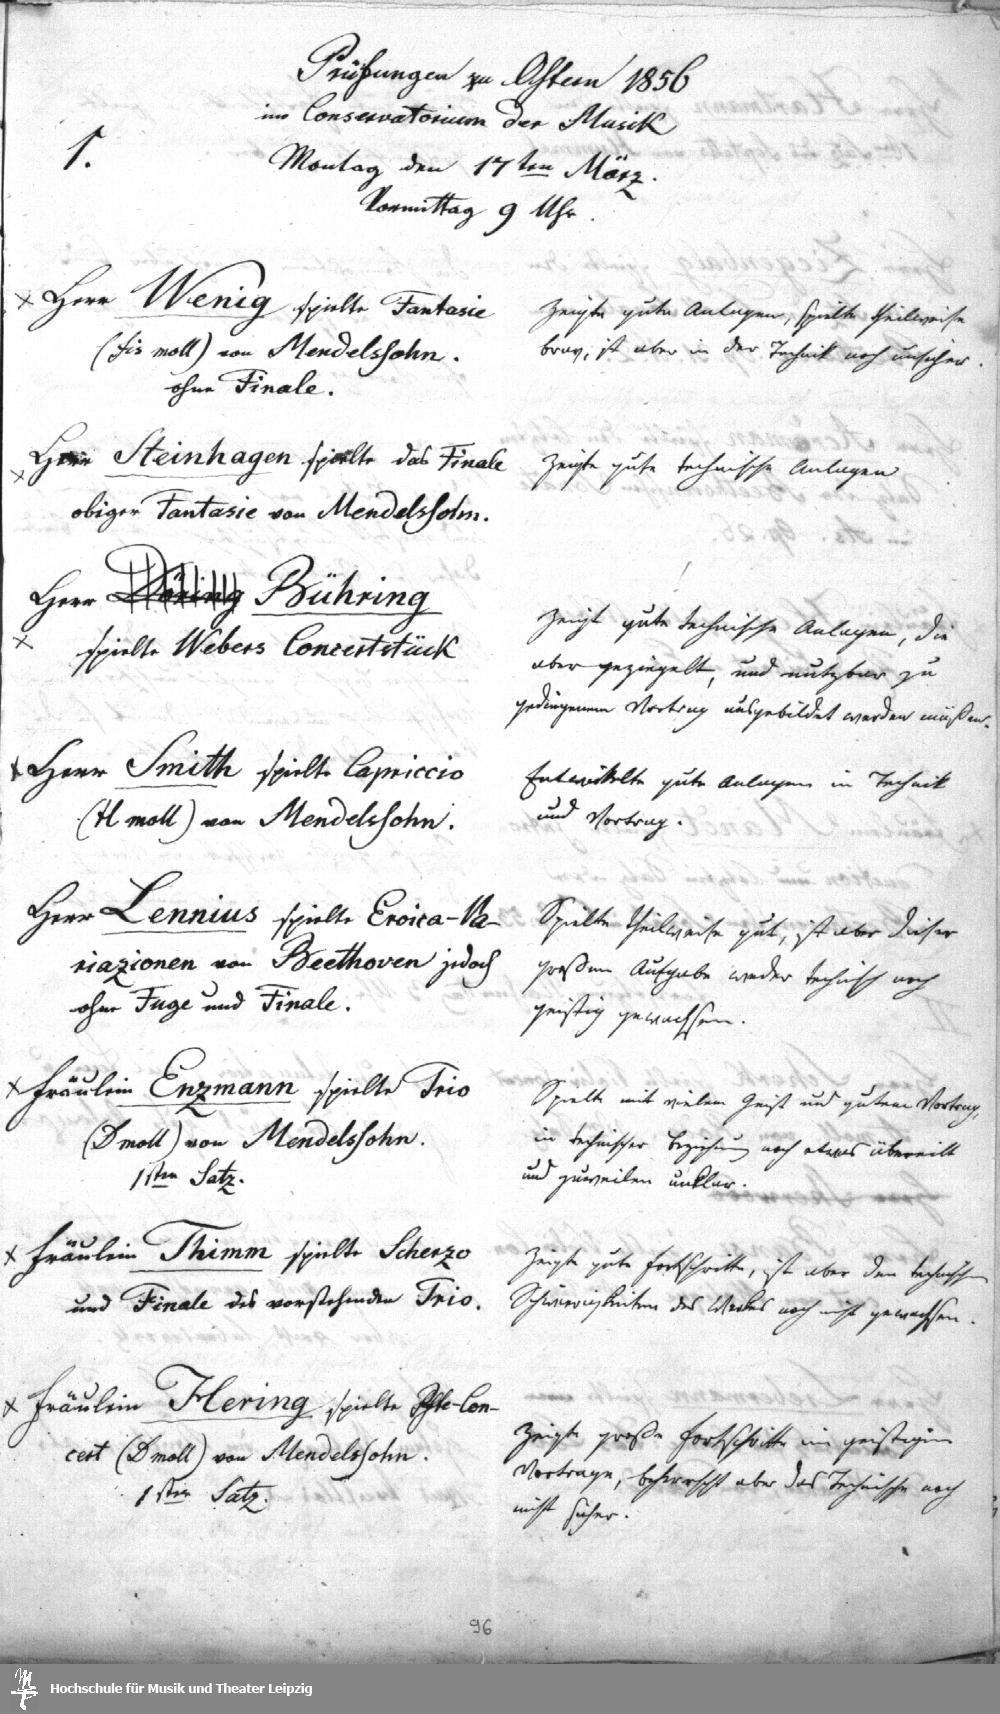 Prüfungen zu Ostern 1856
im Conservatorium der Musik
1.
Montag den 17ten März.
Vormittag 9 Uhr.
× Herr Wenig spielte Fantasie
(fis moll) von Mendelssohn.
ohne Finale.
Zeigte gute Anlagen, spielte theilweise
brav, ist aber in der Technik noch unsicher.
× Herr Steinhagen spielte das Finale
obiger Fantasie von Mendelssohn.
Zeigte gute technische Anlagen
Herr Döring Bühring
× spielte Webers Concertstück
Zeigt gute technische Anlagen, die
aber geziegelt, und nutzbar zu
gediegenem Vortrag ausgebildet werden müßen.
× Herr Smith spielte Capriccio
(H moll) von Mendelssohn.
Entwickelte gute Anlagen in Technik
und Vortrag.
Herr Lennius spielte Eroica-Va-
riazionen von Beethoven jedoch
ohne Fuge und Finale.
Spielte theilweise gut, ist aber dieser
großen Aufgabe weder technisch noch
geistig gewachsen.
× Fräulein Enzmann spielte Trio
(D moll) von Mendelssohn.
1ster Satz.
Spielte mit vielem Geist und gutem Vortrag,
in technischer Beziehung noch etwas übereilt
und zuweilen unklar.
× Fräulein Thimm spielte Scherzo
und Finale des vorstehenden Trio.
Zeigte gute Fortschritte, ist aber den technischen
Schwierigkeiten des Werkes noch nicht gewachsen.
× Fräulein Hering spielte Pfte-Con-
cert (D moll) von Mendelssohn.
1ster Satz.
Zeigte große Fortschritte im geistigen
Vortrage, beherrscht aber das Technische noch
nicht sicher.
96
Hochschule für Musik und Theater Leipzig